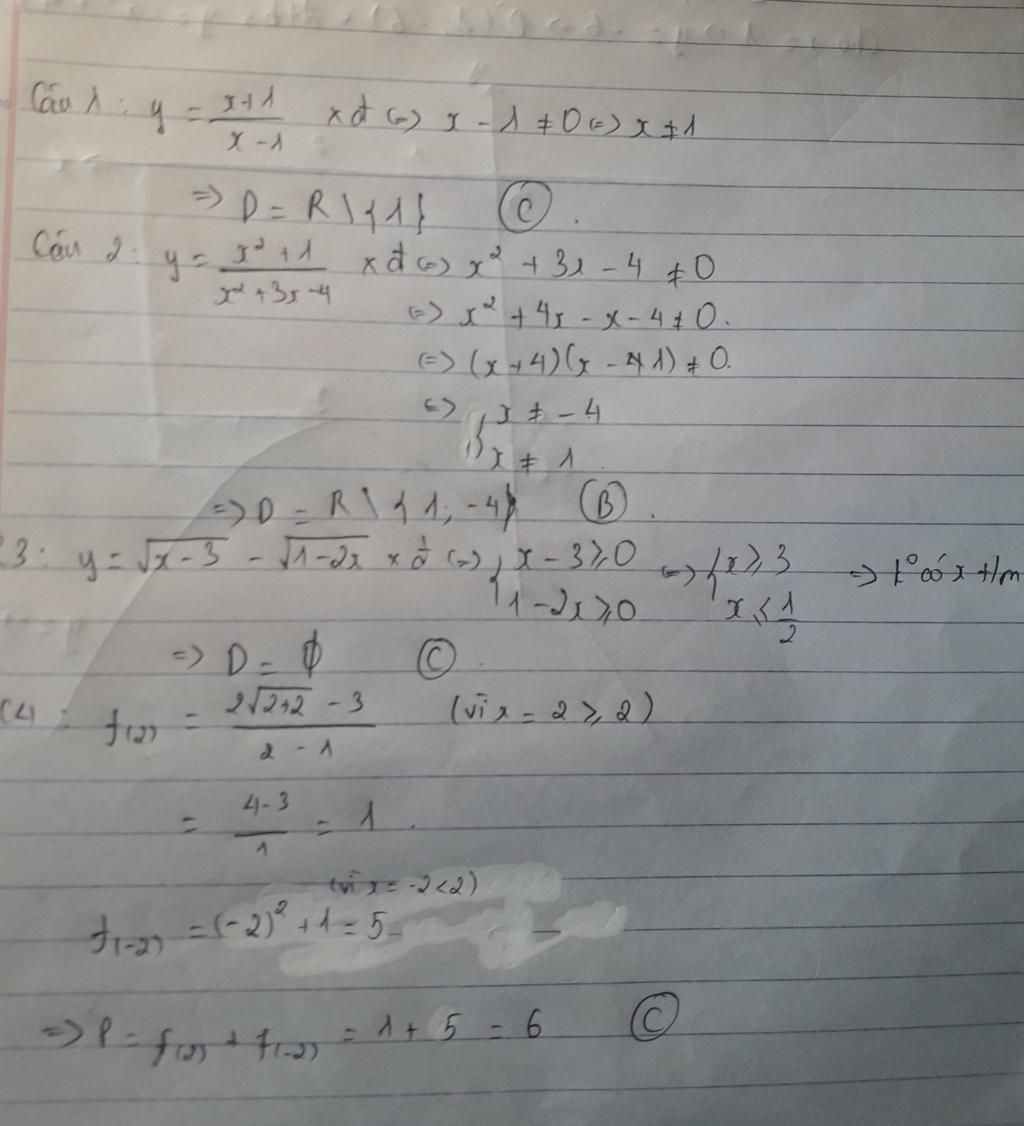 Câu 1 : y = \frac{x+1}{x-1} xđ <=> x - 1 ≠ 0 <=> x ≠ 1
=> D = R \ {1} Ⓒ .
Câu 2 : y = \frac{x² + 1}{x² + 3x - 4} xđ <=> x² + 3x - 4 ≠ 0
<=> x² + 4x - x - 4 ≠ 0.
<=> (x + 4)(x - 1) ≠ 0.
<=> { x ≠ -4
x ≠ 1
=> D = R \ {1; -4} Ⓑ .
3 : y = √(x-3) - √(1-2x) xđ <=> { x - 3 ≥ 0 <=> { x ≥ 3 => k° có x t/m
1 - 2x ≥ 0 x ≤ \frac{1}{2}
=> D = ∅ Ⓒ .
C4 : f(2) = \frac{2√(2+2) - 3}{2 - 1} (vì x = 2 ≥ 2)
= \frac{4-3}{1} = 1 .
(vì x = -2 < 2)
f(-2) = (-2)² + 1 = 5
=> P = f(2) + f(-2) = 1 + 5 = 6 Ⓒ